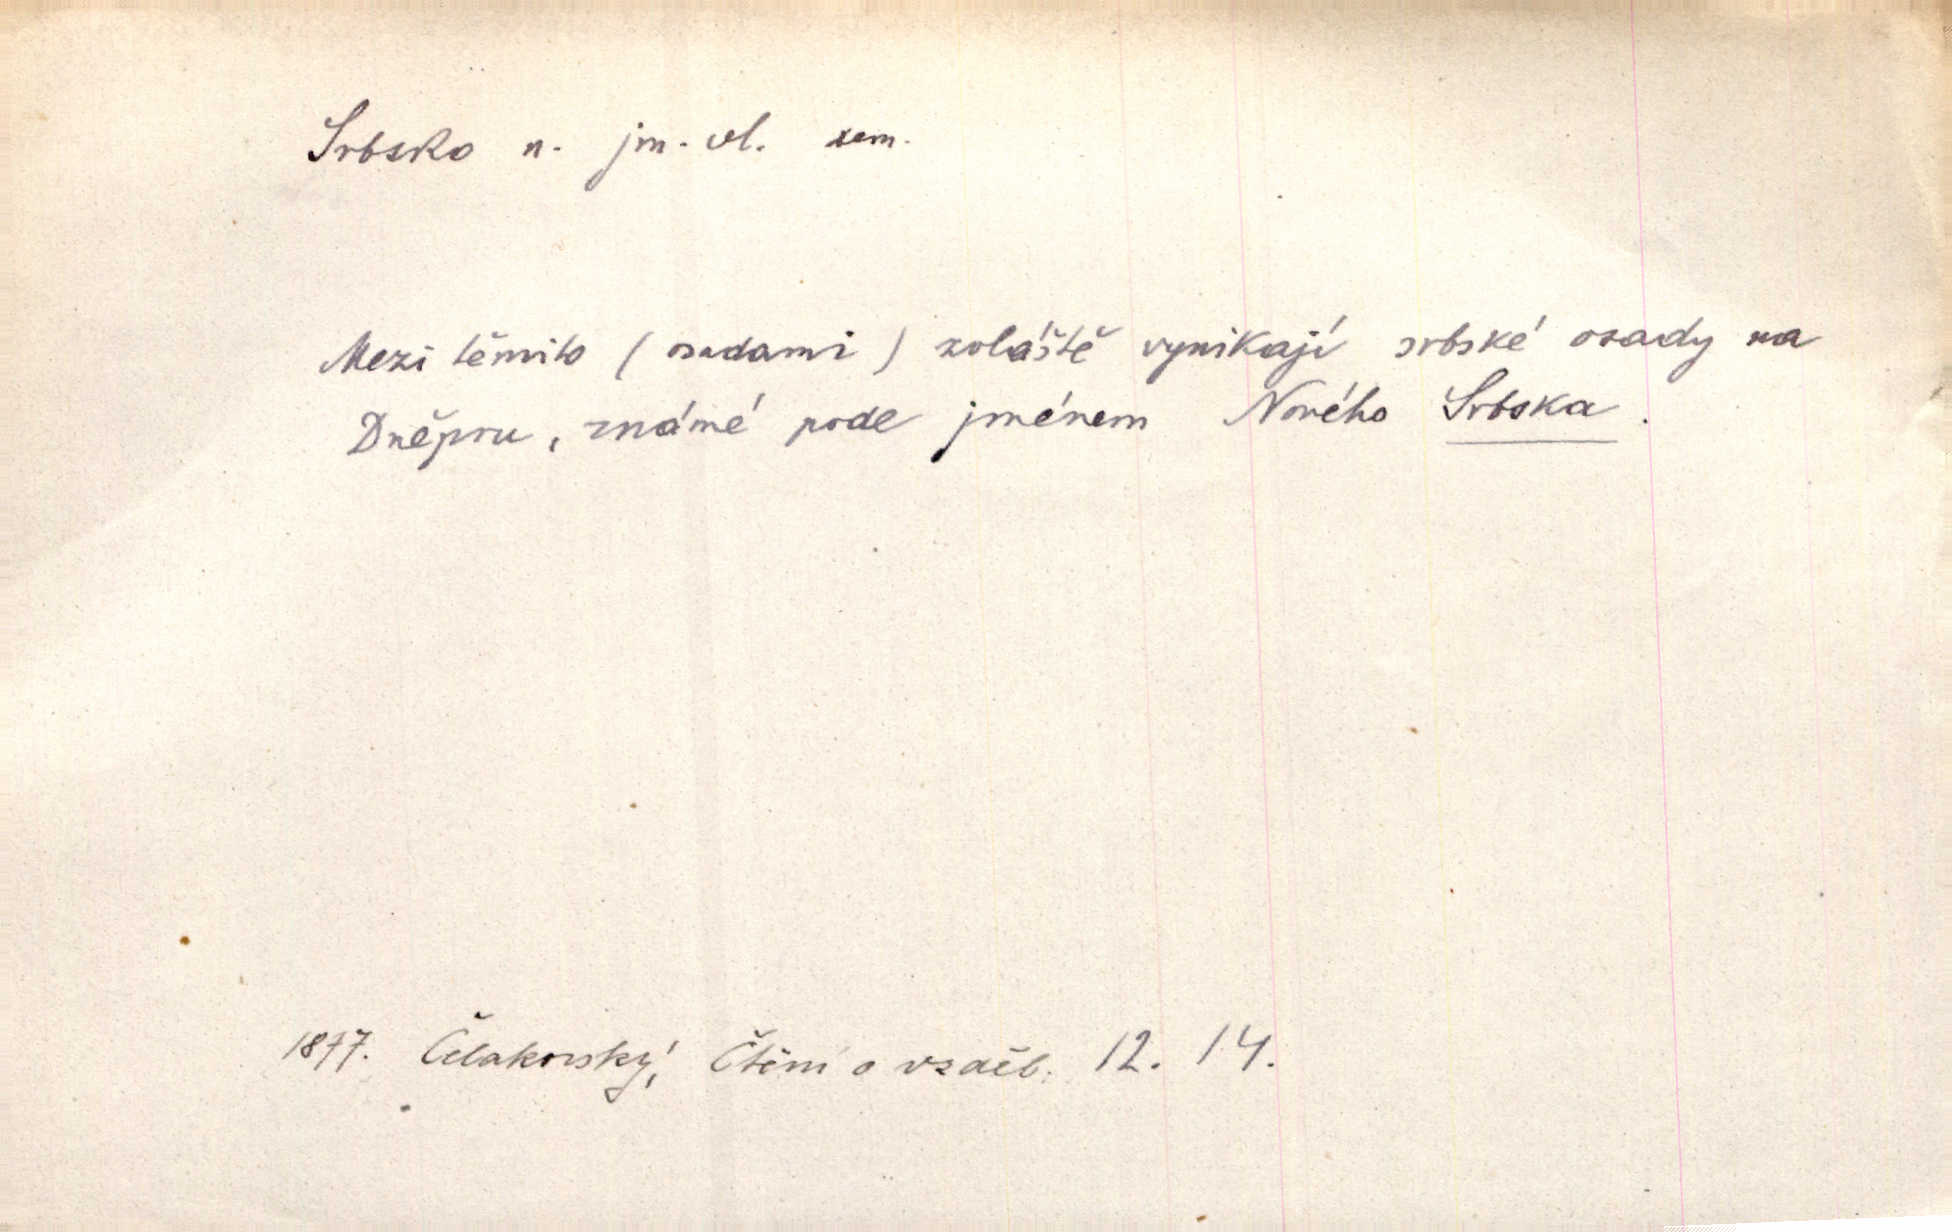 Srbsko n. jm. vl. zem.
Mezi těmito (osadami) zvláště vynikají srbské osady na
Dněpru, známé pode jménem Nového Srbska.
1877. Čelakovský, Čtění o vzděl. 12. 14.